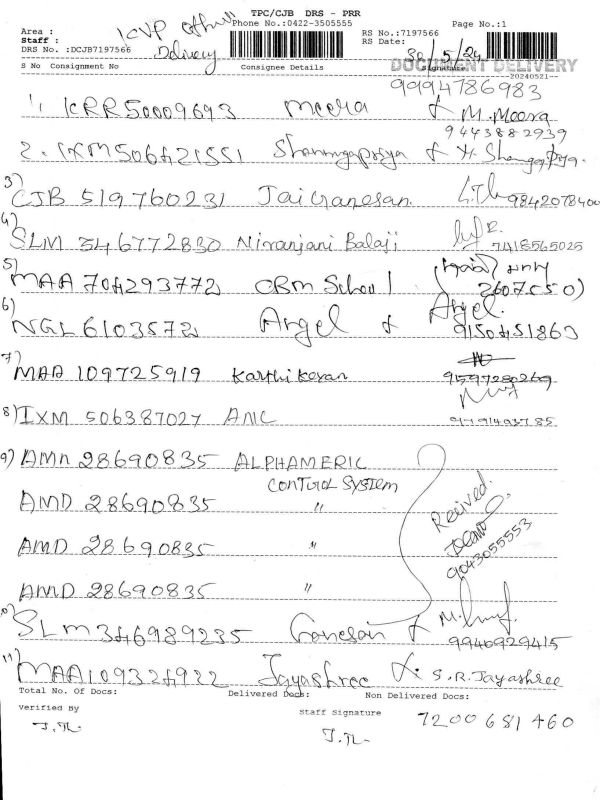 TPC/CJB DRS - PRR
Area : KVP
Phone No.:0422-3505555
Page No.:1
Staff :
RS No.:7197566
DRS No. :DCJB7197566 Delivery
RS Date: 30/5/24
DOCUMENT DELIVERY
S No Consignment No Consignee Details Signature
20240521--
9994786983
1, KRR50009693 Meera & M.Meera
9443882939
2. IXM506421551 Shanmugapriya &
3) CJB 519760231 Jai Ganesan 9842078400
4) SLM 346772830 Niranjani Balaji 7418565025
5) MAA 704293772 CBM School 2607550)
6) NGL6103572 Angel & Angel.
9150451863
7) MAA 109725919 Karthi Keyan 9597280269
8) IXM 506387027 ANC
9) AMD 28690835 ALPHAMERIC
CONTROL SYSTEM
AMD 28690835 "
Recived.
AMD 28690835 "
9043055553
AMD 28690835 "
10) SLM346989235 Ganesan &
9940929415
11) MAA109324922 Jayashree & S.R.Jayashree
Total No. Of Docs: Delivered Docs: Non Delivered Docs:
7200681460
Verified By Staff Signature